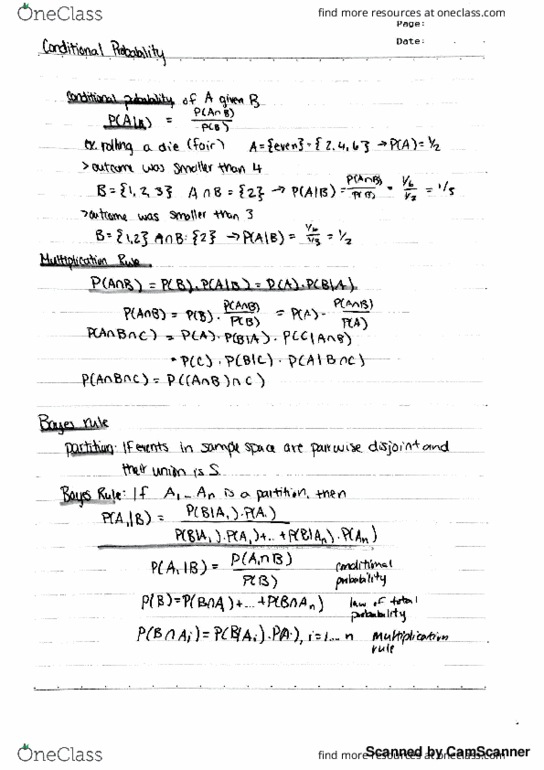 OneClass
find more resources at oneclass.com
Page:
Date:
Conditional Probability
Conditional probability of A given B
P(A|B) = P(A∩B) / P(B)
ex. rolling a die (fair) A = {even} = {2, 4, 6} → P(A) = 1/2
> outcome was smaller than 4
B = {1, 2, 3} A ∩ B = {2} → P(A|B) = P(A∩B) / P(B) = 1/6 / 1/2 = 1/3
> outcome was smaller than 3
B = {1,2} A∩B: {2} → P(A|B) = 1/6 / 1/3 = 1/2
Multiplication Rule
P(A∩B) = P(B) . P(A|B) = P(A) . P(B|A)
P(A∩B) = P(B) . P(A∩B) / P(B) = P(A) . P(A∩B) / P(A)
P(A∩B∩C) = P(A) . P(B|A) . P(C|A∩B)
= P(C) . P(B|C) . P(A|B∩C)
P(A∩B∩C) = P((A∩B)∩C)
Bayes rule
partition: If events in sample space are pairwise disjoint and
their union is S
Bayes Rule: If A₁ ... Aₙ is a partition, then
P(A₁|B) = P(B|A₁) . P(A₁) / P(B|A₁) . P(A₁) + .. + P(B|Aₙ) . P(Aₙ)
P(A₁|B) = P(A₁∩B) / P(B) conditional probability
P(B) = P(B∩A₁) + ... + P(B∩Aₙ) law of total probability
P(B∩Aᵢ) = P(B|Aᵢ) . P(Aᵢ), i = 1 ... n multiplication rule
OneClass
find more resources at oneclass.com
Scanned by CamScanner